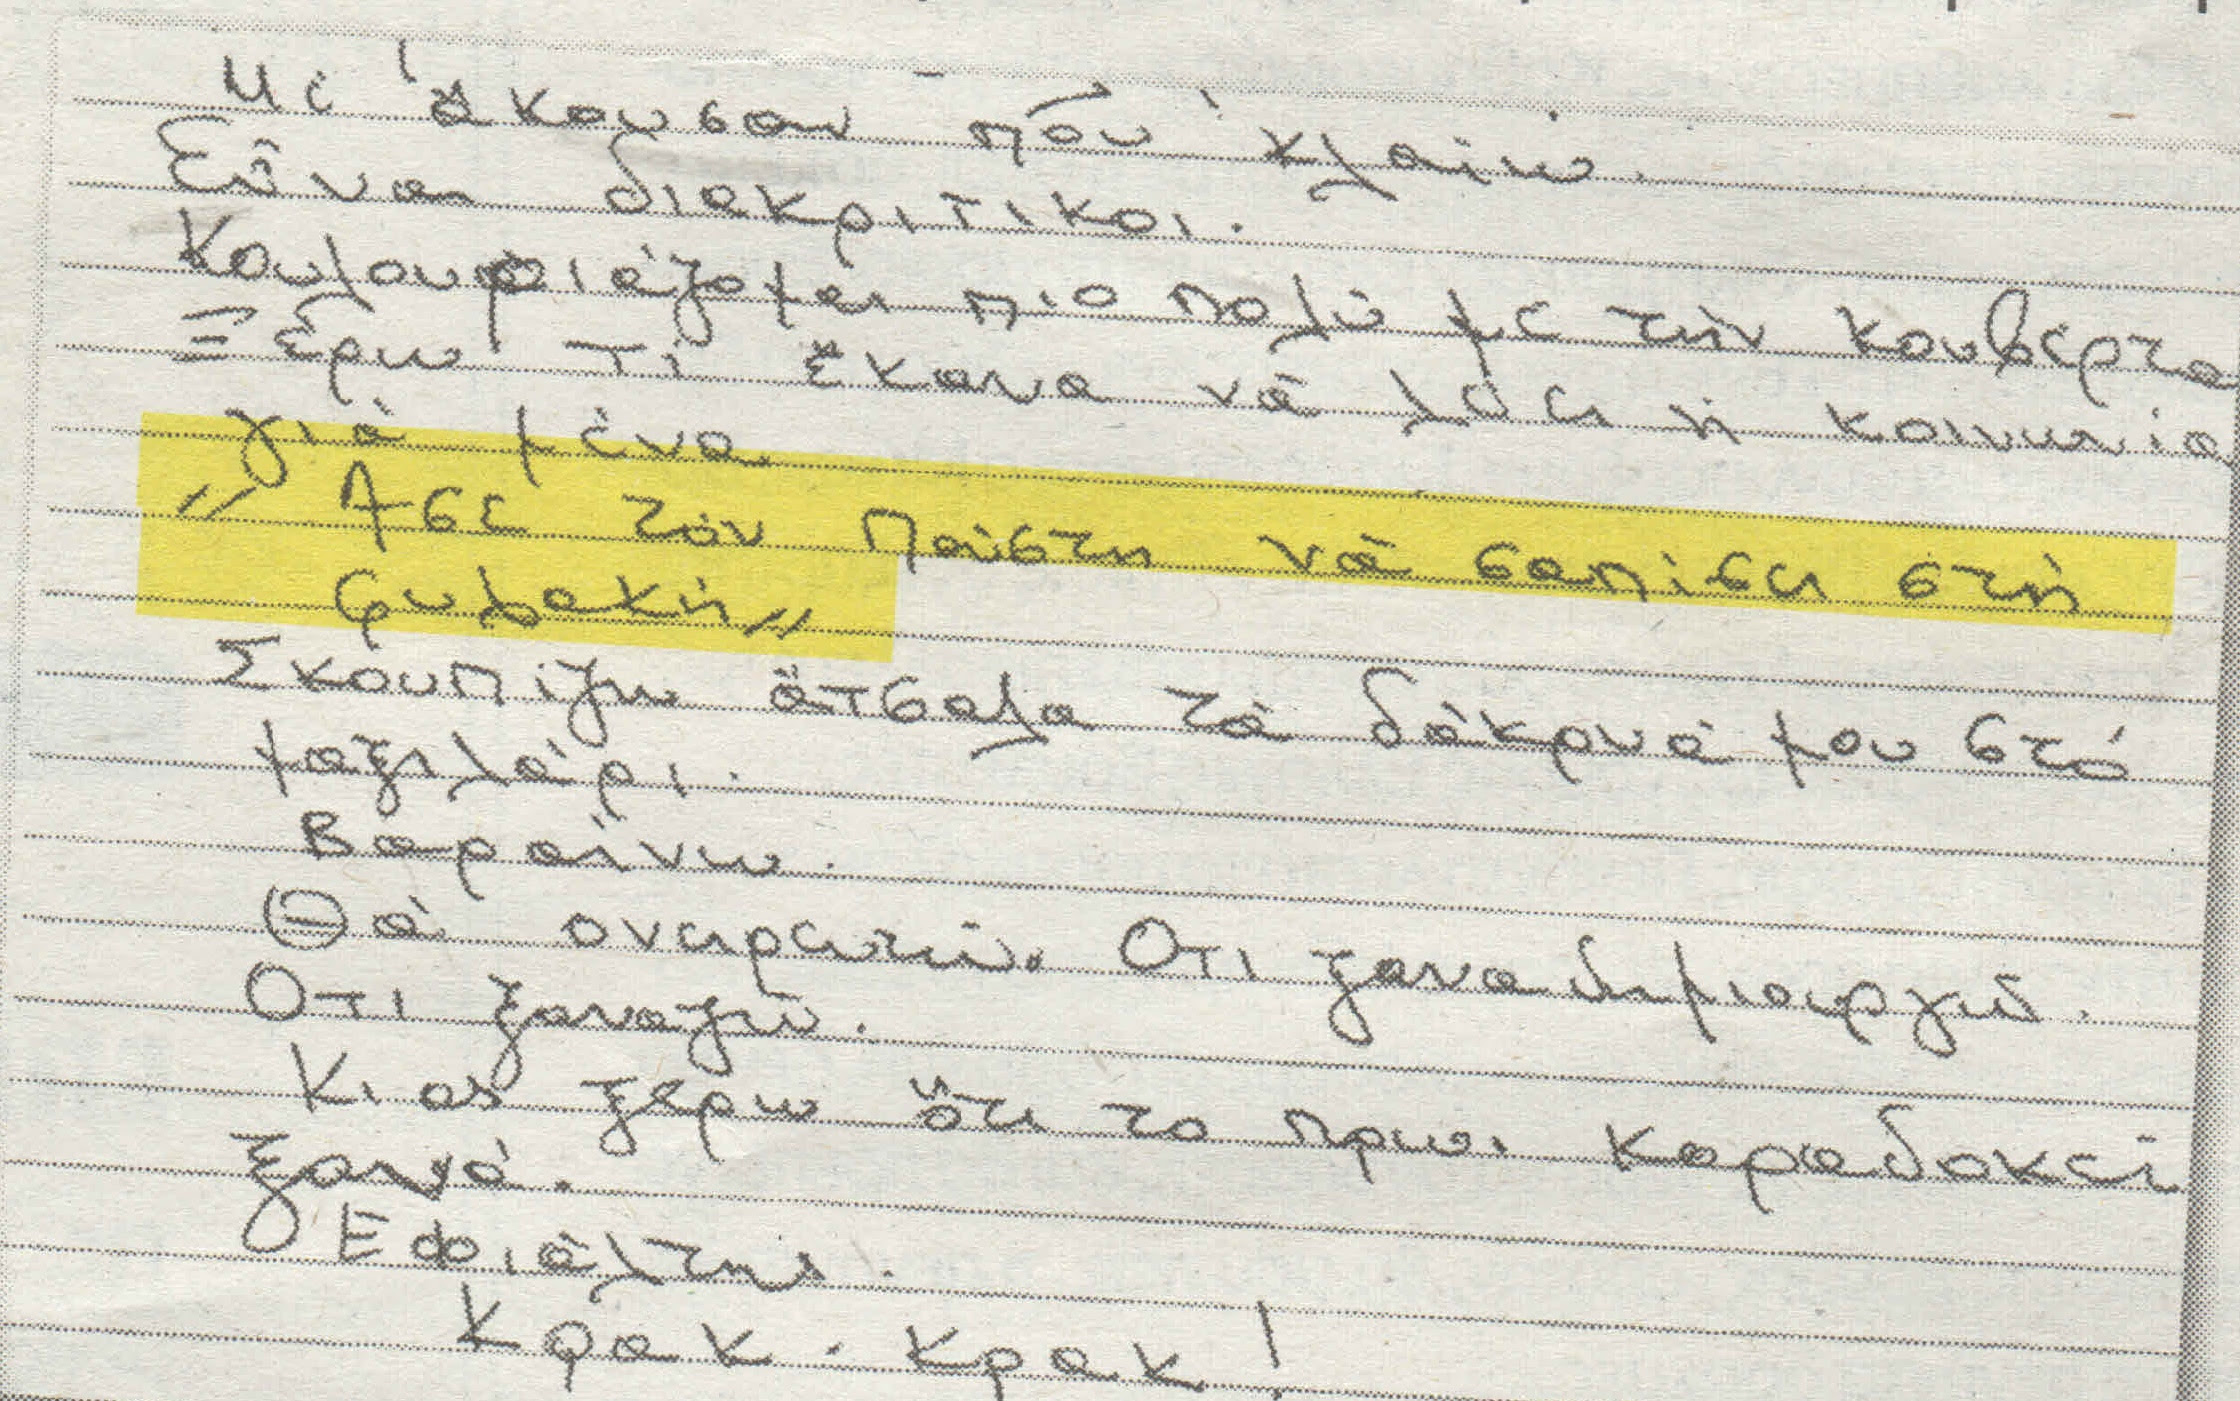 Μέ ἄκουσαν πού κλαίω.
Εἶναι διακριτικοι.
Κουλουριάζομαι πιο πολύ με τήν κουβέρτα
Ξέρω τί ἔκανα νά λέει ἡ κοινωνία
γιά μένα.
" Ασε τόν πούστη νά σαπίσει στή
φυλακή "
Σκουπίζω ἄτσαλα τά δάκρυά μου στό
μαξιλάρι.
Βαραίνω.
Θά ονειρευτώ. Οτι ξαναδημιουργώ.
Οτι ξαναζώ.
Κι ας ξέρω ὅτι το πρωι καραδοκεί
ξανά.
Εφιάλτης.
Κρακ - κρακ!